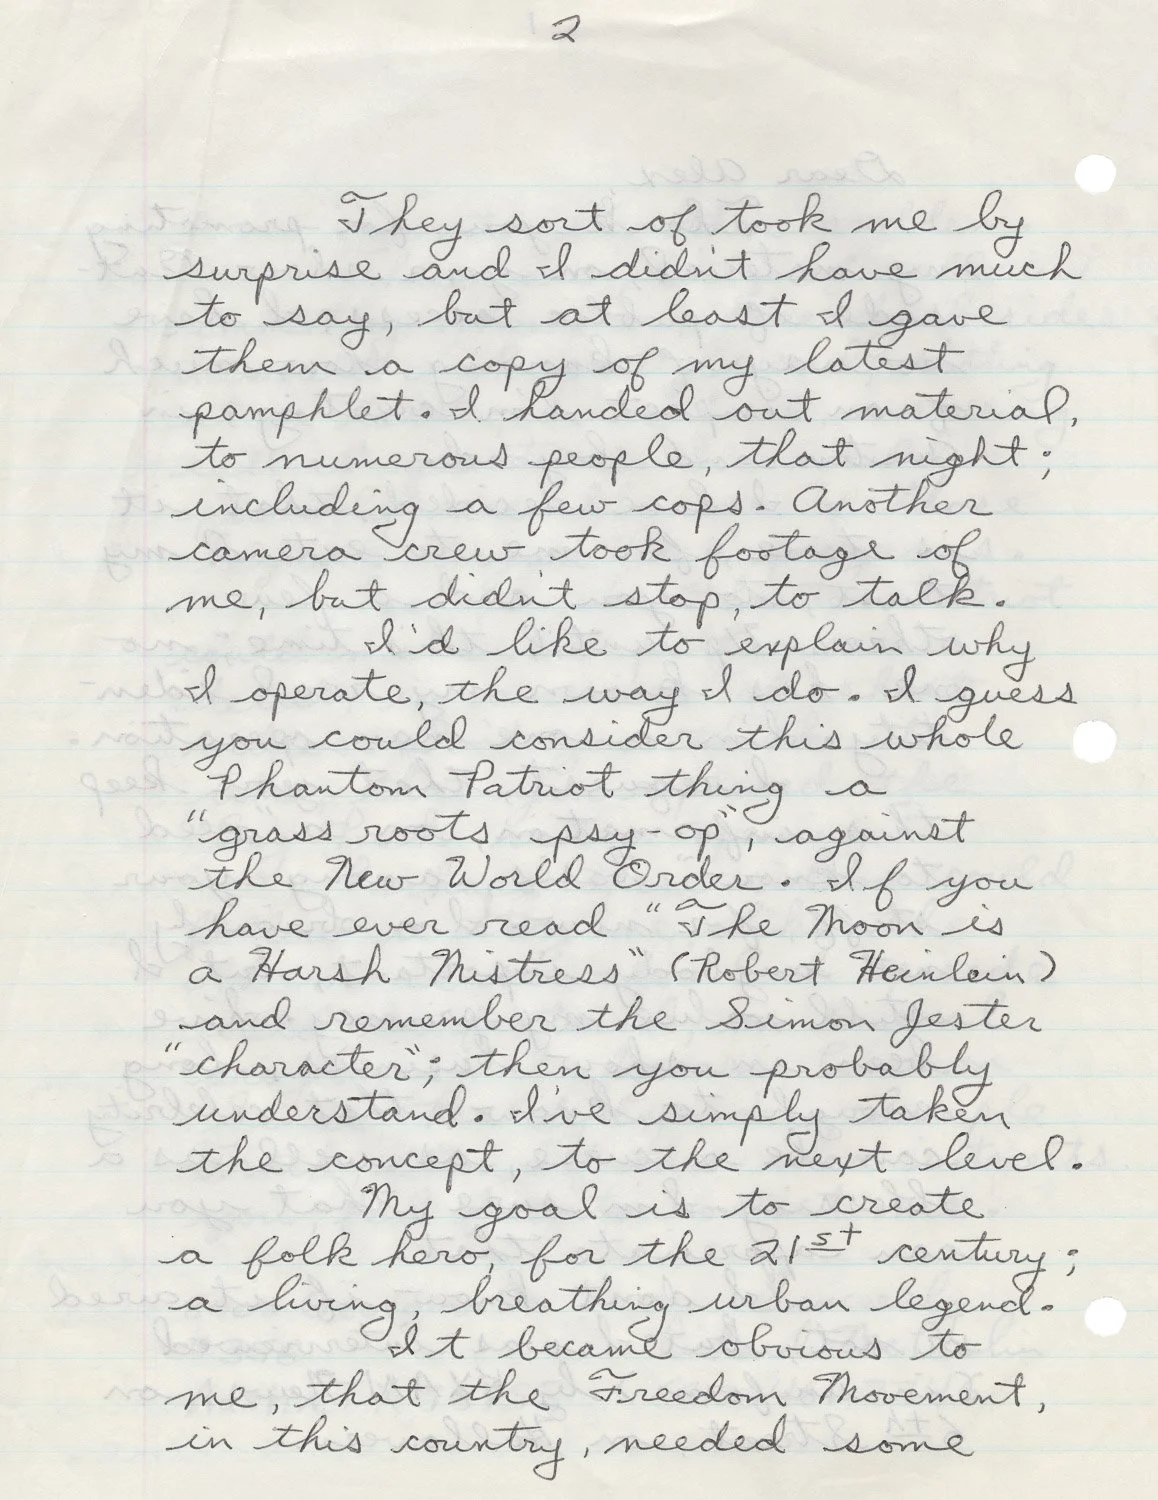 2
They sort of took me by
surprise and I didn't have much
to say, but at least I gave
them a copy of my latest
pamphlet. I handed out material,
to numerous people, that night;
including a few cops. Another
camera crew took footage of
me, but didn't stop, to talk.
I'd like to explain why
I operate, the way I do. I guess
you could consider this whole
Phantom Patriot thing a
"grass roots psy-op", against
the New World Order. If you
have ever read "The Moon is
a Harsh Mistress" (Robert Heinlein)
and remember the Simon Jester
"character"; then you probably
understand. I've simply taken
the concept, to the next level.
My goal is to create
a folk hero, for the 21st century;
a living, breathing urban legend.
It became obvious to
me, that the Freedom Movement,
in this country, needed some